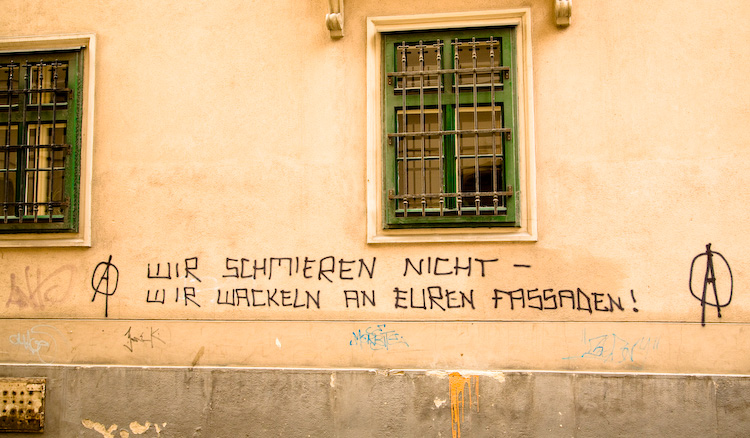 WIR SCHMIEREN NICHT –
WIR WACKELN AN EUREN FASSADEN!